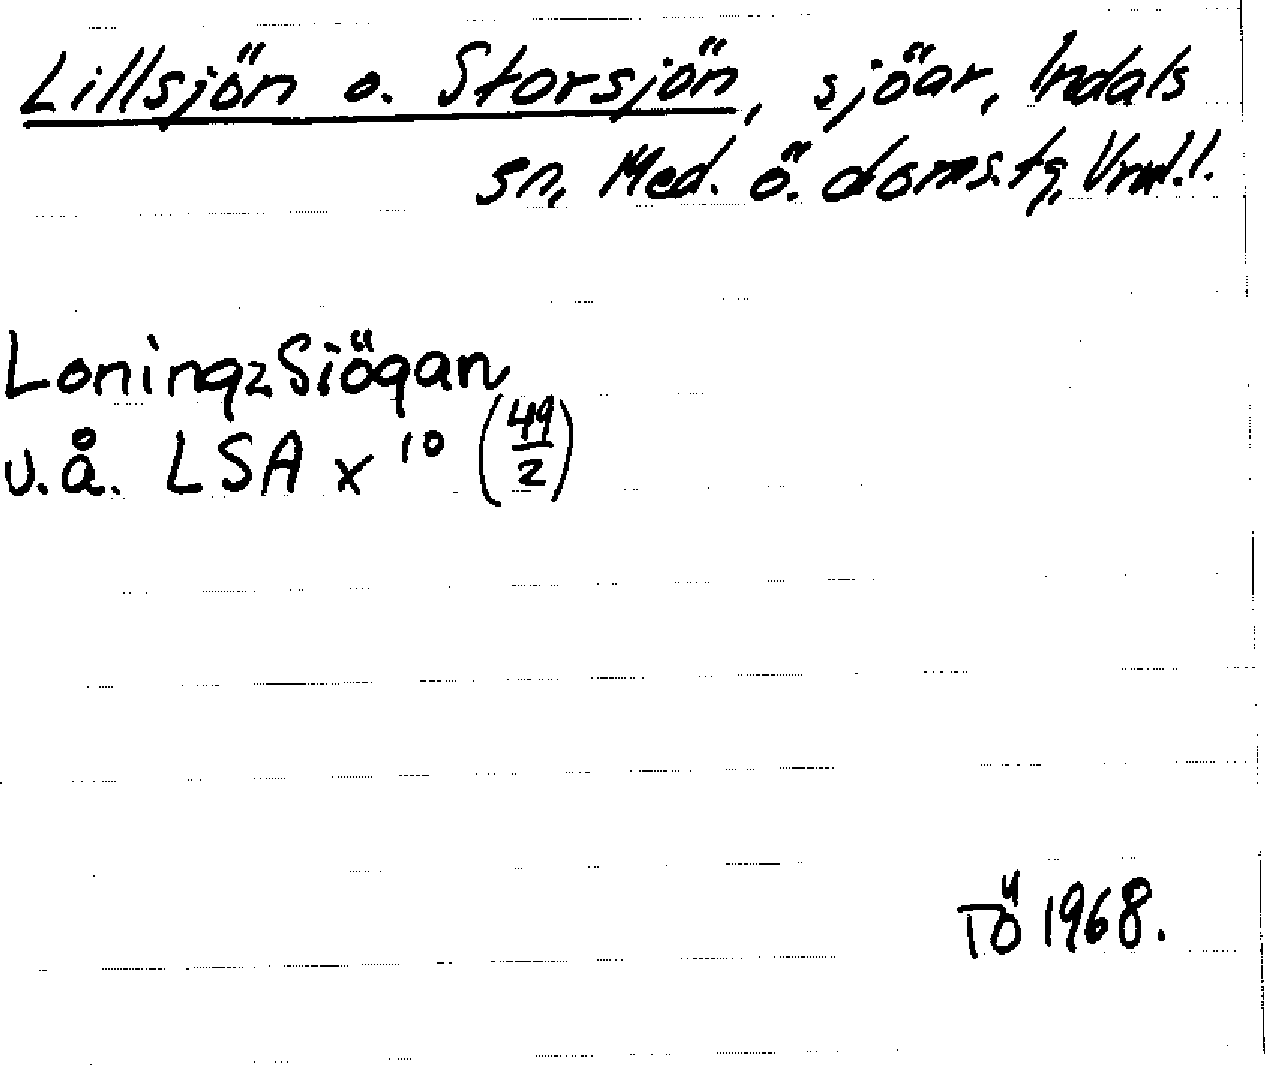 Lillsjön o. Storsjön, sjöar, Indals
sn, Med. ö. doms.tg, Vrml.l.
LoningzSiögan
u.å. LSA x 10 (49/2)
TÖ 1968.